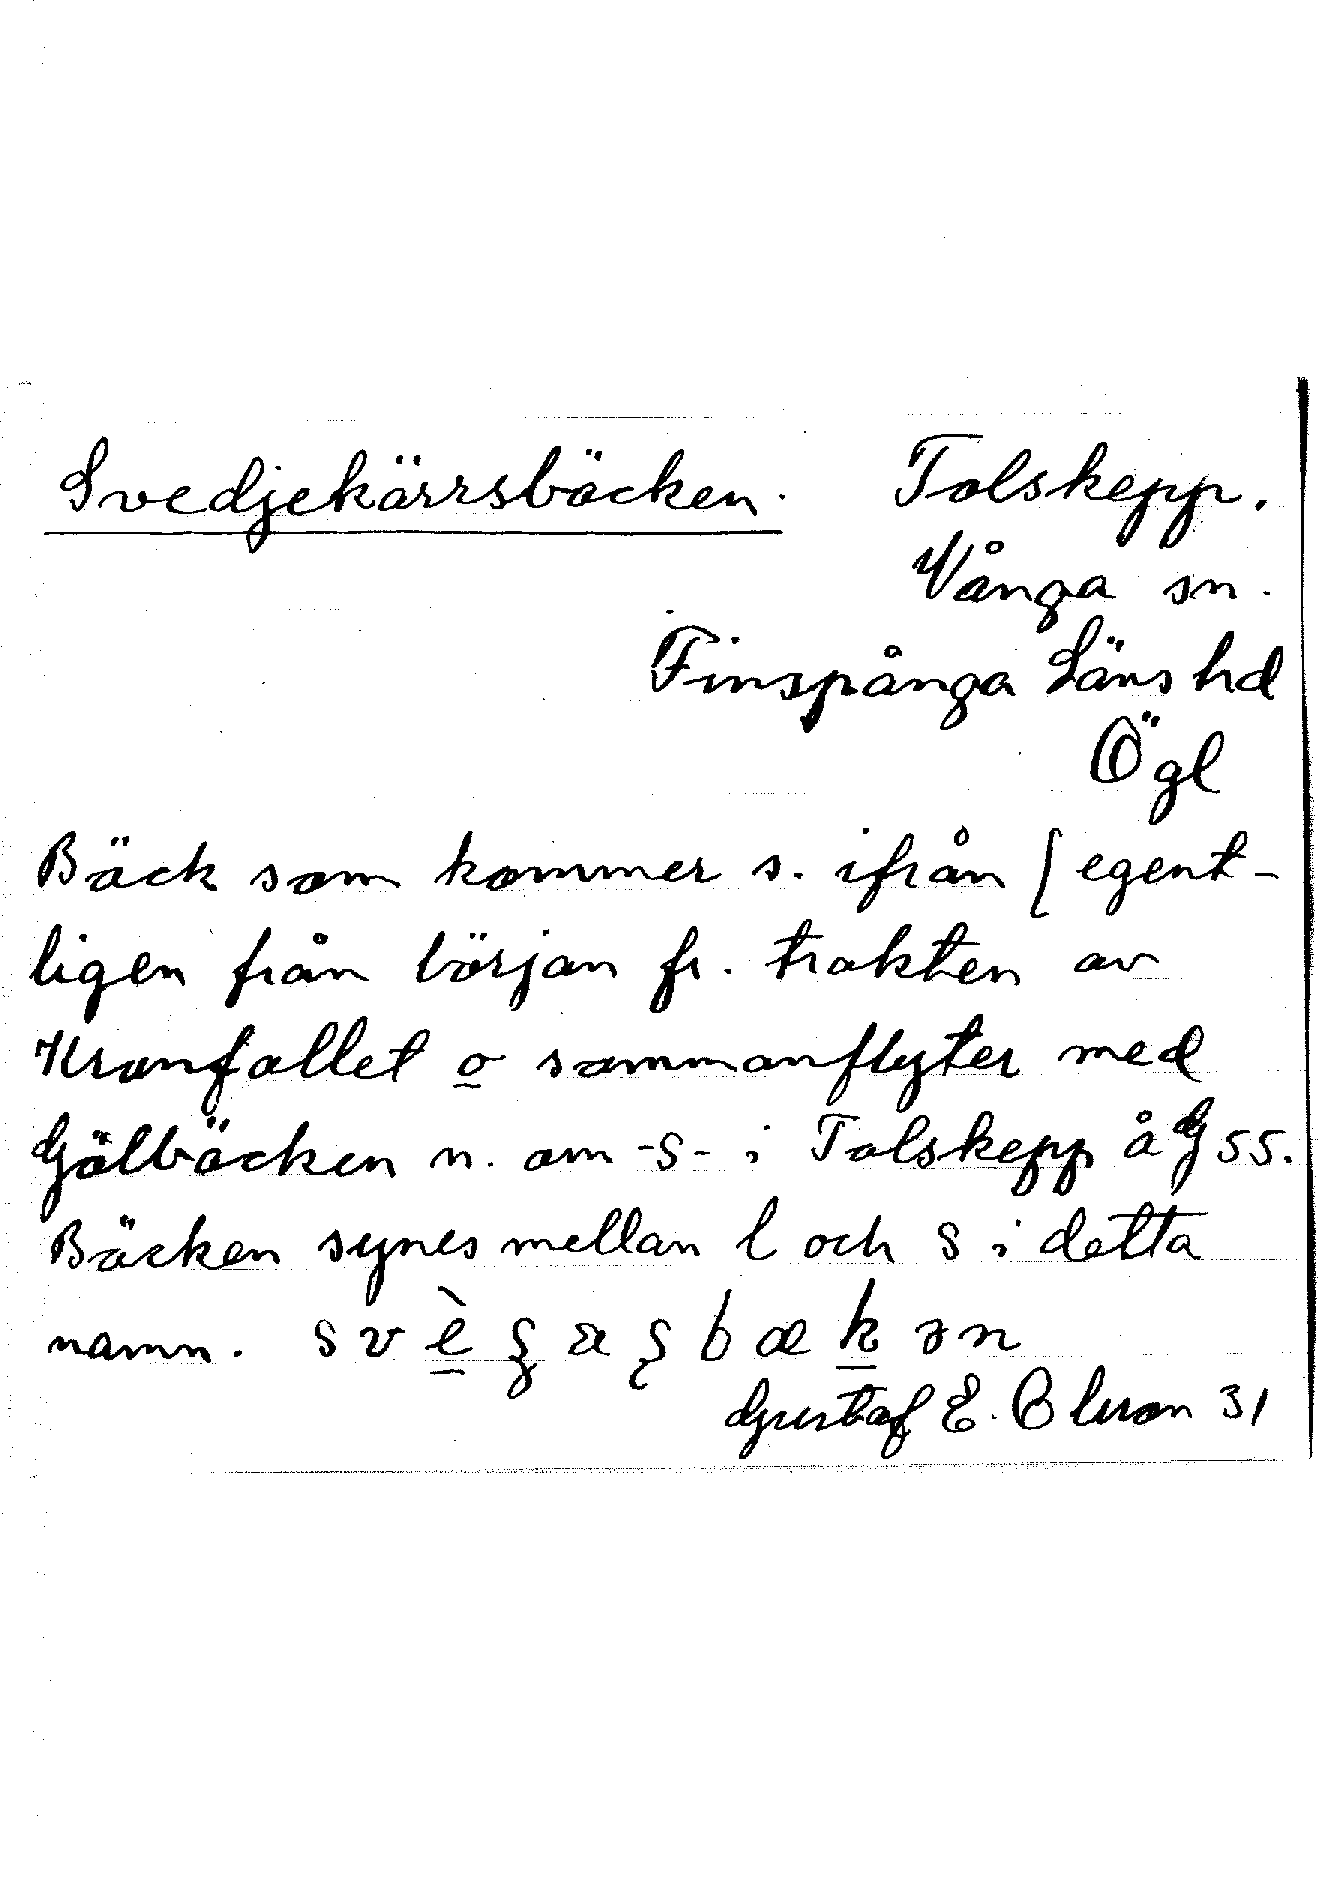 Svedjekärrsbäcken. Tolskepp.
Vånga sn.
Finspånga Läns hd
Ögl
Bäck som kommer s. ifrån [egent-
ligen från början fr. trakten av
Kronfallet o sammanflyter med
Gölbäcken n. om -s- i Tolskepp å G55.
Bäcken synes mellan l och s i detta
namn.
Gustaf E. Olsson 31